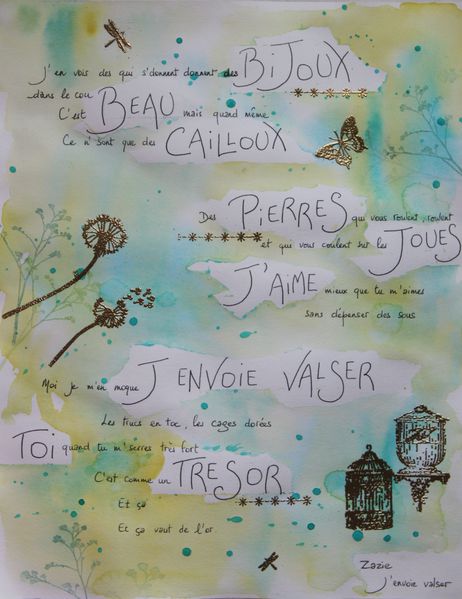 J'en vois des qui s'donnent donnent des BIJOUX
dans le cou
C'est BEAU mais quand même
Ce n'sont que des CAILLOUX
Des PIERRES qui vous roulent, roulent
et qui vous coulent sur les JOUES
J'AIME mieux que tu m'aimes
sans dépenser des sous
Moi je m'en moque J ENVOIE VALSER
Les trucs en toc, les cages dorées
TOI quand tu m'serres très fort
C'est comme un TRESOR
Et ça
Et ça vaut de l'or.
Zazie
J'envoie valser